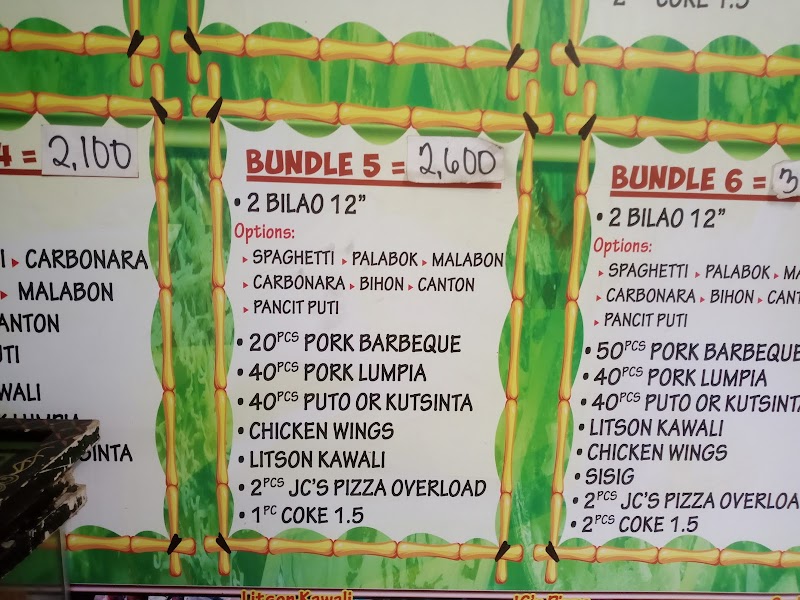 COKE 1.5
4 = 2,100
CARBONARA
MALABON
BUNDLE 5 = 2,600
• 2 BILAO 12"
Options:
▸ SPAGHETTI ▸ PALABOK ▸ MALABON
▸ CARBONARA ▸ BIHON ▸ CANTON
▸ PANCIT PUTI
• 20PCS PORK BARBEQUE
• 40PCS PORK LUMPIA
• 40PCS PUTO OR KUTSINTA
• CHICKEN WINGS
• LITSON KAWALI
• 2PCS JC'S PIZZA OVERLOAD
• 1PC COKE 1.5
BUNDLE 6 = 3
• 2 BILAO 12"
Options:
▸ SPAGHETTI ▸ PALABOK ▸ MA
▸ CARBONARA ▸ BIHON ▸ CANT
▸ PANCIT PUTI
• 50PCS PORK BARBEQUE
• 40PCS PORK LUMPIA
• 40PCS PUTO OR KUTSINTA
• LITSON KAWALI
• CHICKEN WINGS
• SISIG
• 2PCS JC'S PIZZA OVERLOA
• 2PCS COKE 1.5
Litson Kawali